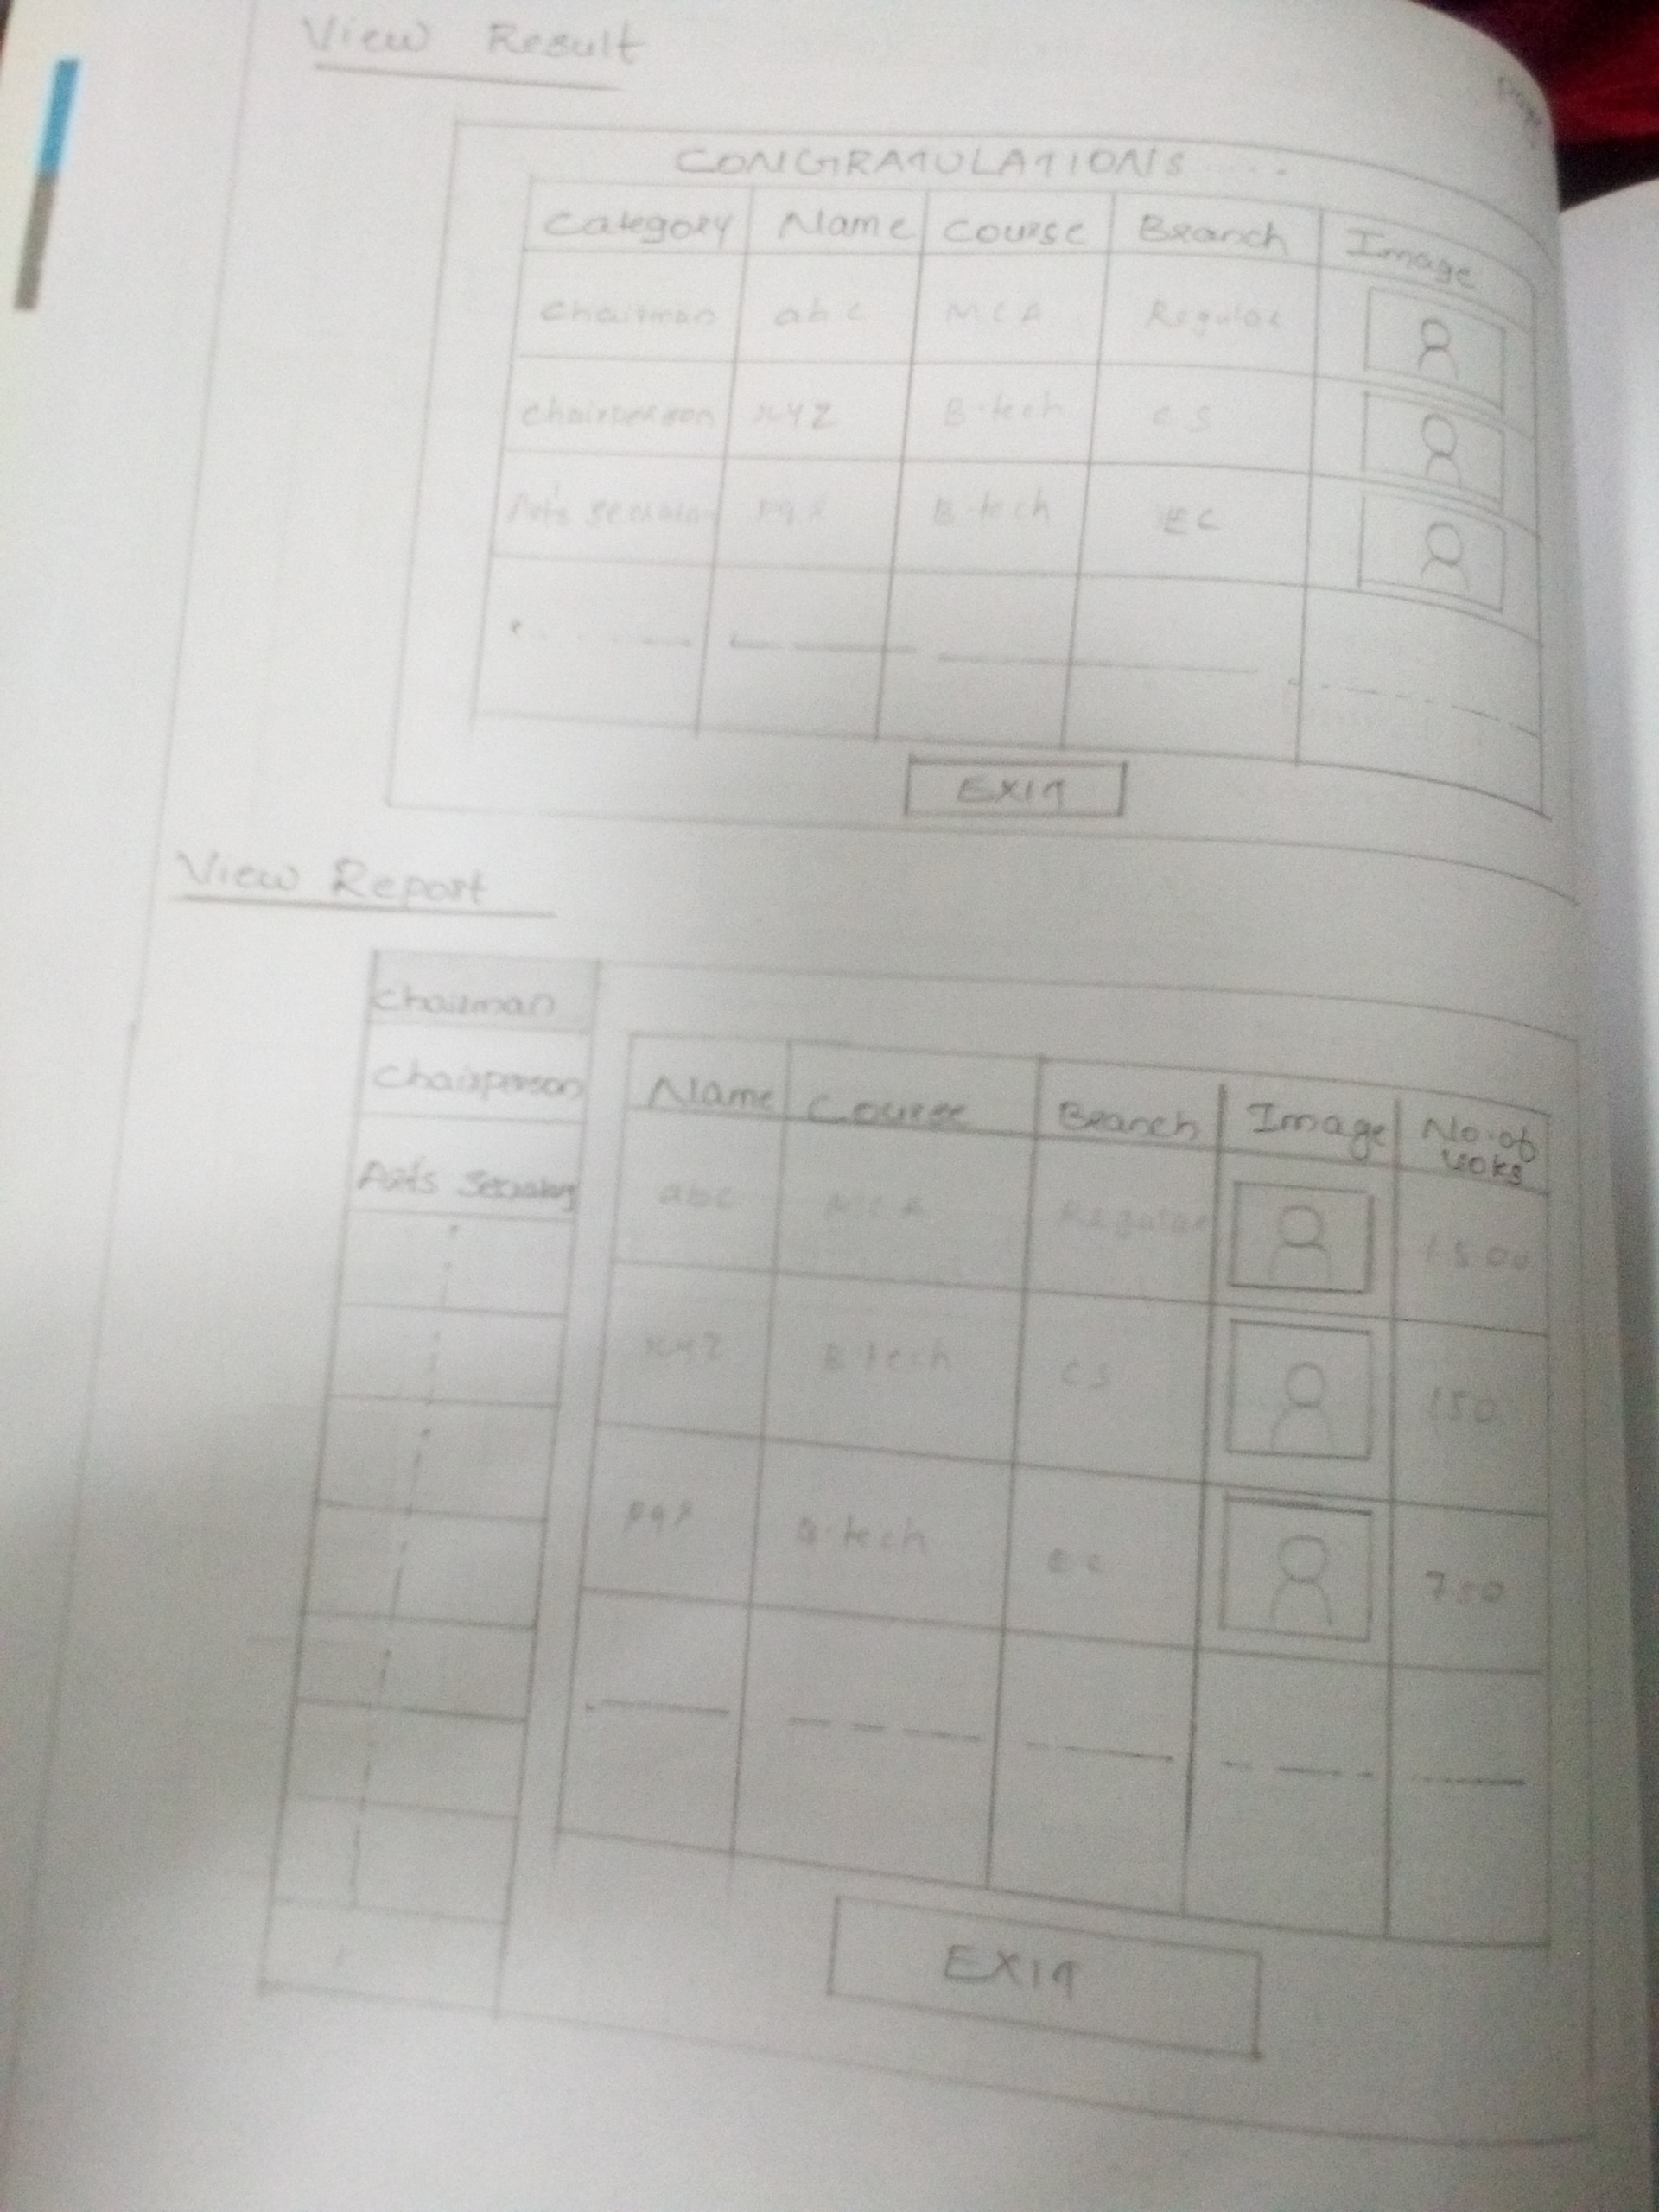 View Result
CONGRATULATIONS ....
Category Name Course Branch Image
Chairman abc MCA Regular
Chairperson XYZ B.tech CS
Arts pqr B.tech EC
EXIT
View Report
Chairman
Chairperson
Arts
Name Course Branch Image No. of
votes
abc MCA Regular 1500
XYZ B.tech CS 150
pqr B.tech EC 750
EXIT